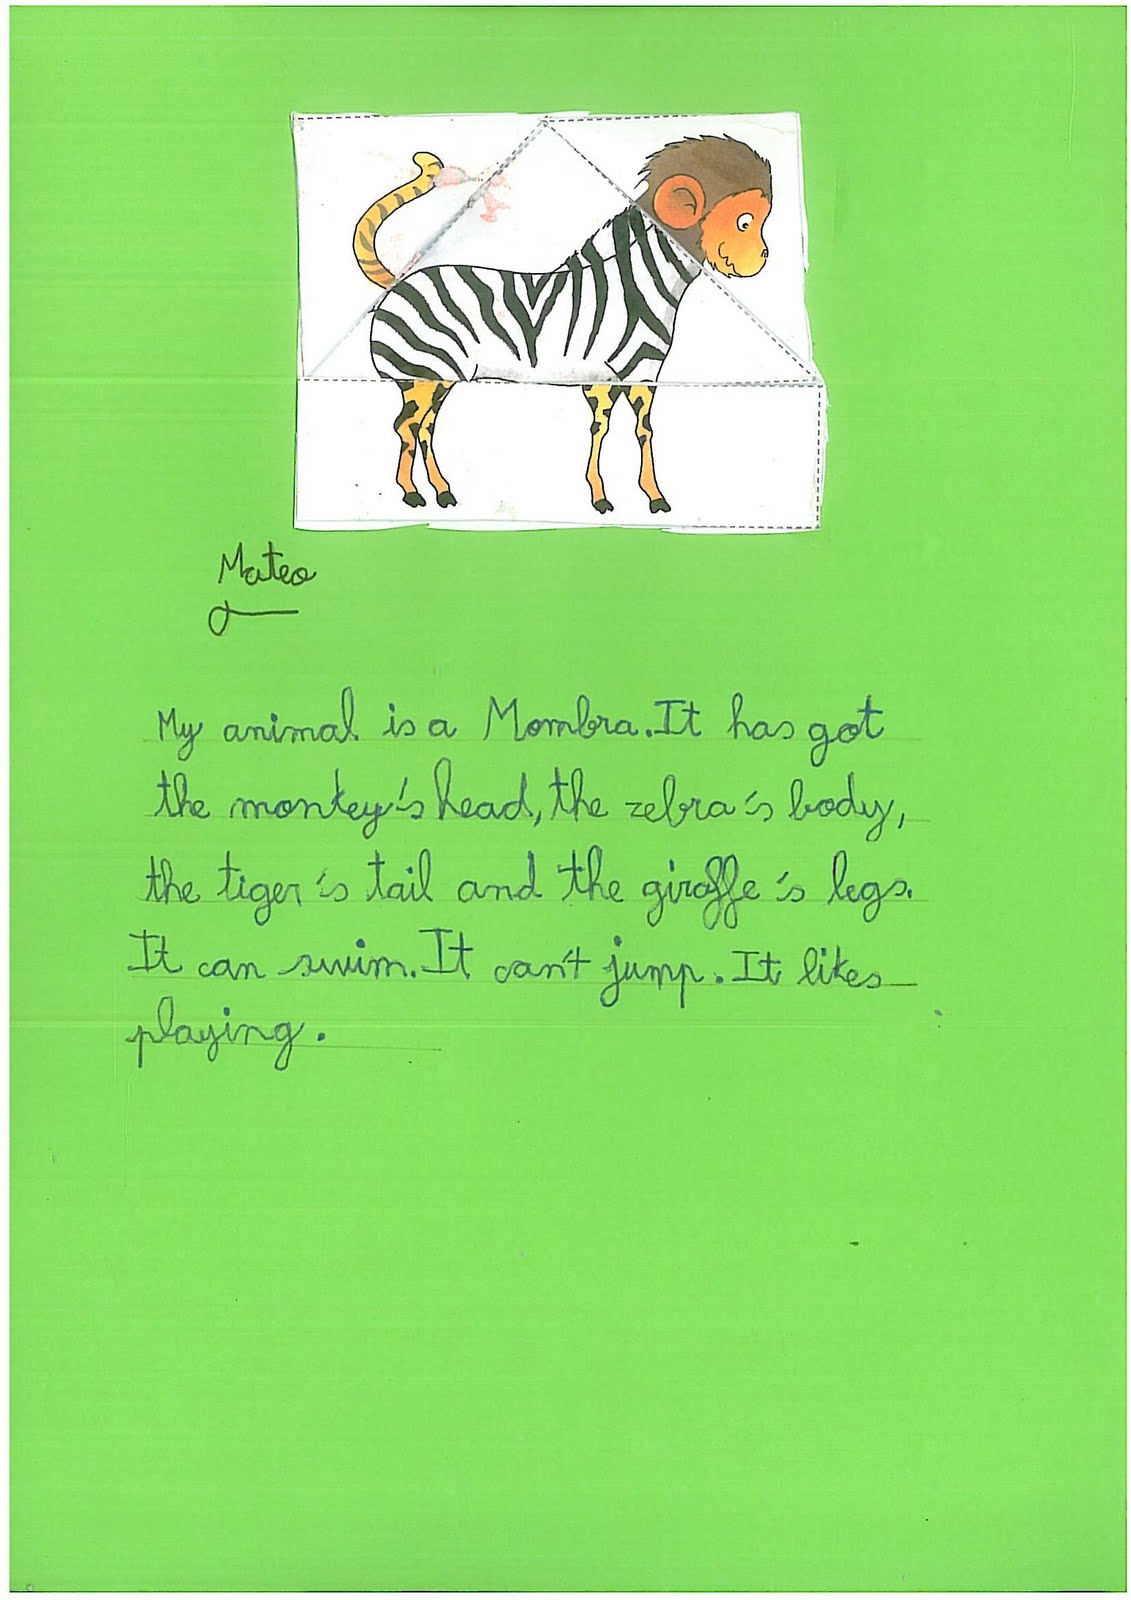 Mateo
My animal is a Mombra. It has got
the monkey's head, the zebra's body,
the tiger's tail and the giraffe's legs.
It can swim. It can't jump. It likes
playing.